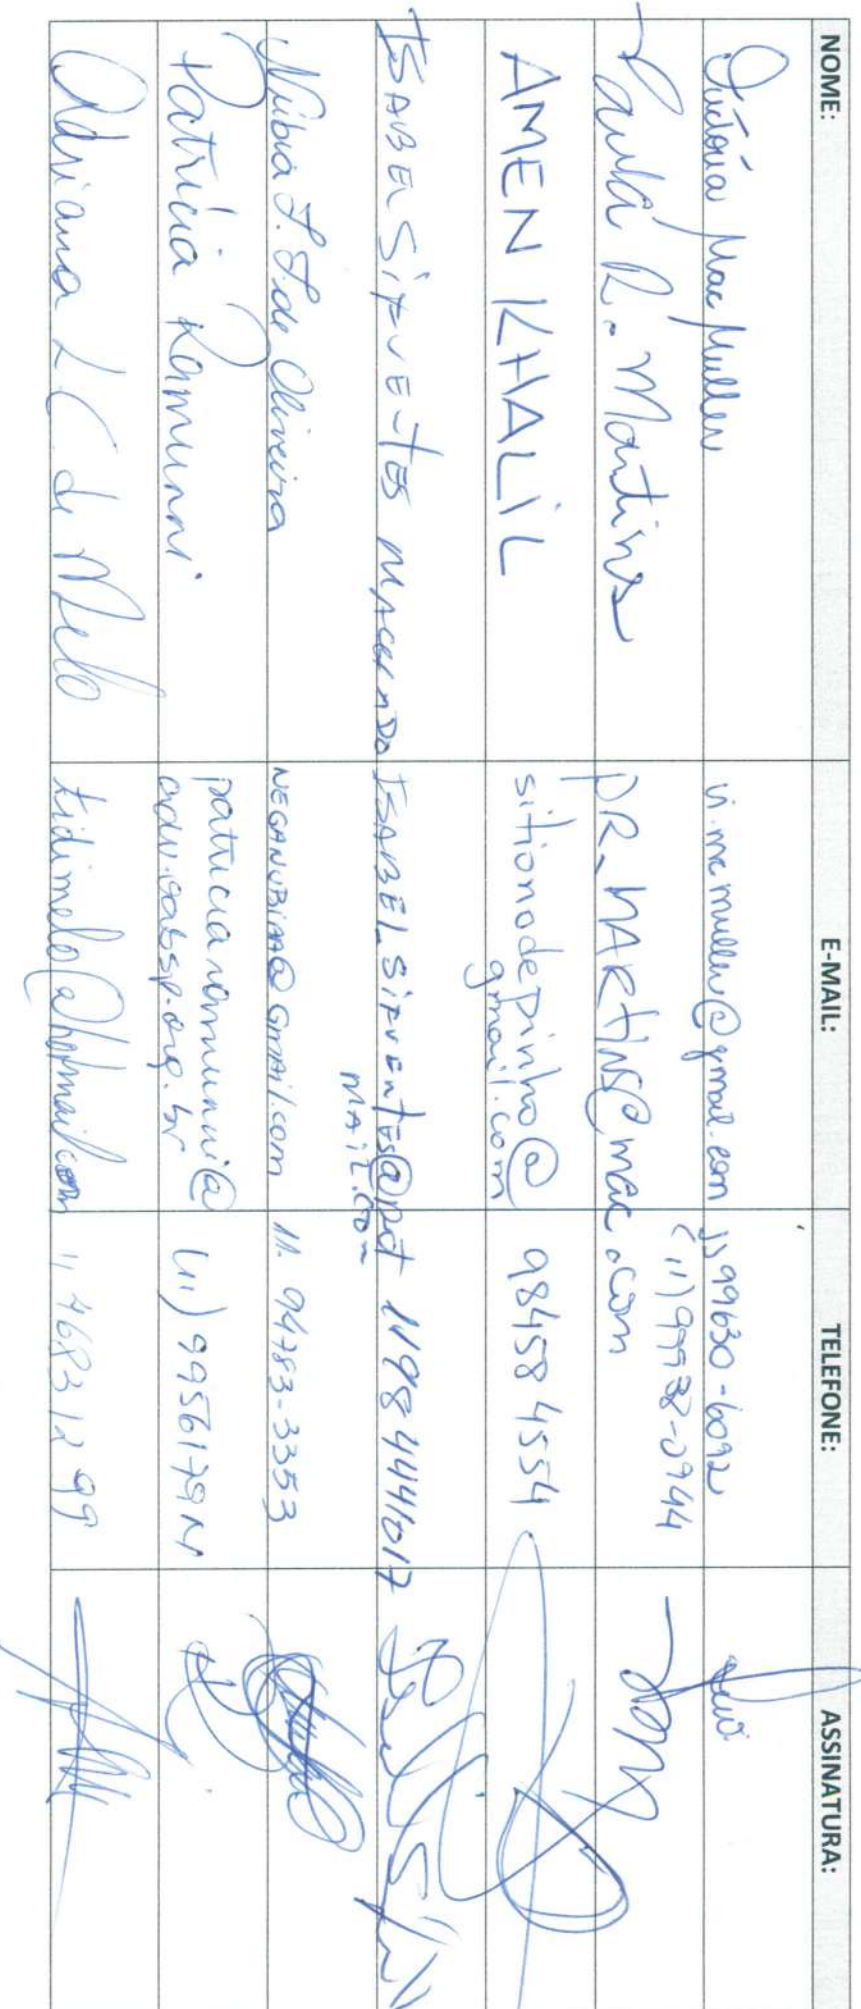 NOME: E-MAIL: TELEFONE: ASSINATURA:
Mac Mullen vi.mcmullen@gmail.com 11 99630-6092
Paula R. Martins PR_MARTINS@mac.com (11) 99938-0944
AMEN KHALIL sitionodepinho@ 98458 4554
gmail.com
ISABEL SIFUENTES MACHADO ISABEL_SIFUENTES@hot 11984441017
MAIL.com
Nubia de Oliveira NEGANUBIAA@GMAIL.com 11. 94783-3353
Patrícia Ramunni patriciaramunni@
adv.oabsp.org.br
Adriana L C de Mello tidimelo@hotmail.com 11 46831299